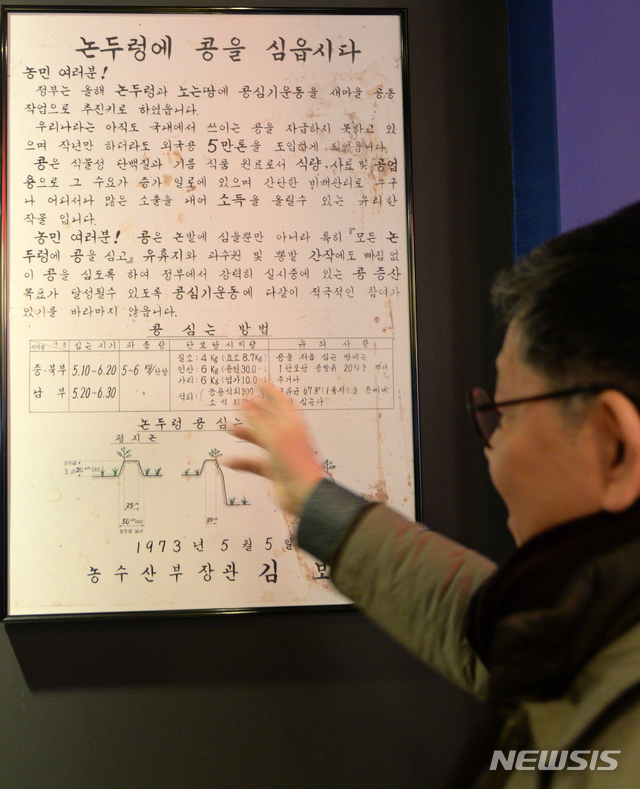 논두렁에 콩을 심읍시다
농민 여러분!
정부는 올해 논두렁과 노는땅에 콩심기운동을 새마을 공동
작업으로 추진키로 하였읍니다.
우리나라는 아직도 국내에서 쓰이는 콩을 자급하지 못하고 있
으며 작년만 하더라도 외국콩 5만톤을 도입하게 되었읍니다.
콩은 식물성 단백질과 기름 식품 원료로서 식량·사료 및 공업
용으로 그 수요가 증가 일로에 있으며 간단한 비배관리로 누구
나 어디서나 많은 소출을 내어 소득을 올릴수 있는 유리한
작물 입니다.
농민 여러분! 콩은 논밭에 심을뿐만 아니라 특히 『모든 논
두렁에 콩을 심고』 유휴지와 과수원 및 뽕밭 간작에도 빠짐없
이 콩을 심도록 하여 정부에서 강력히 실시중에 있는 콩 증산
목표가 달성될수 있도록 콩심기운동에 다같이 적극적인 참여가
있기를 바라마지 않읍니다.
콩 심는 방법
심는 시기 파종량 단보당 시비량 유의사항
중·북부 5.10~6.20 5-6 질소: 4 Kg (요소 8.7Kg) 콩을 처음 심는 땅에는
인산: 6 Kg (용인 30.0 1단보당
가리: 6 Kg (염가 10.0
남부 5.20~6.30 〃 석회: (농용석회
논두렁콩심는
평지논
20
25
50
25
1973년 5월 5일
농수산부장관 김 보
NEWSIS